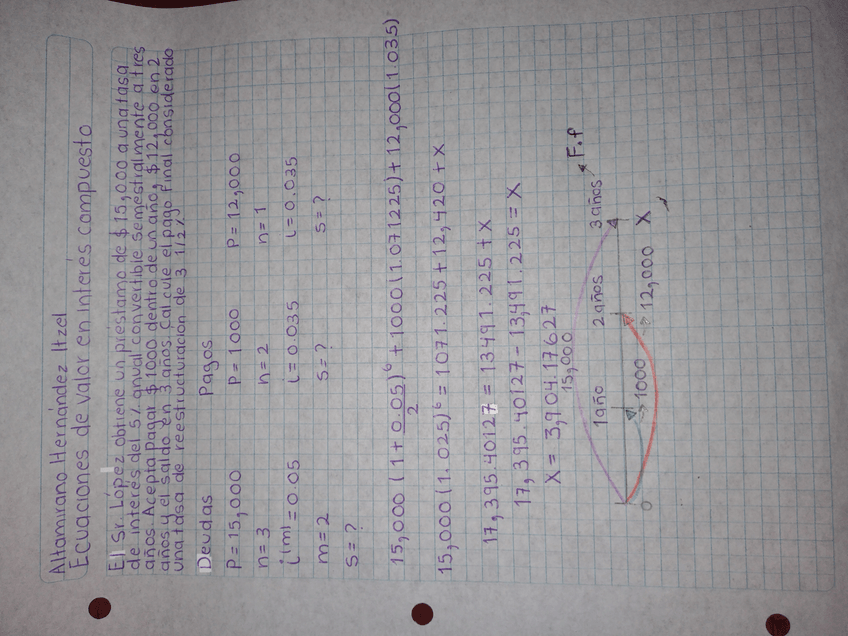 Altamirano Hernández Itzel
Ecuaciones de valor en interés compuesto
El Sr. López obtiene un préstamo de $15,000 a una tasa
de interés del 5% anual convertible semestralmente a tres
años. Acepta pagar $1000 dentro de un año, $12,000 en 2
años y el saldo en 3 años. Calcule el pago final considerado
una tasa de reestructuración de 3 1/2%
Deudas Pagos
P=15,000 P=1000 P=12,000
n=3 n=2 n=1
i(m)=0.05 i=0.035 i=0.035
m=2 S=? S=?
S=?
15,000 (1+0.05/2)^6 + 1000(1.071225)+12,000(1.035)
15,000(1.025)^6 = 1071.225+12,420+X
17,395.40127 = 13491.225+X
17,395.40127-13,491.225 = X
X = 3,904.17627
15,000
1año 2años 3años F.F
0 1000 12,000 X